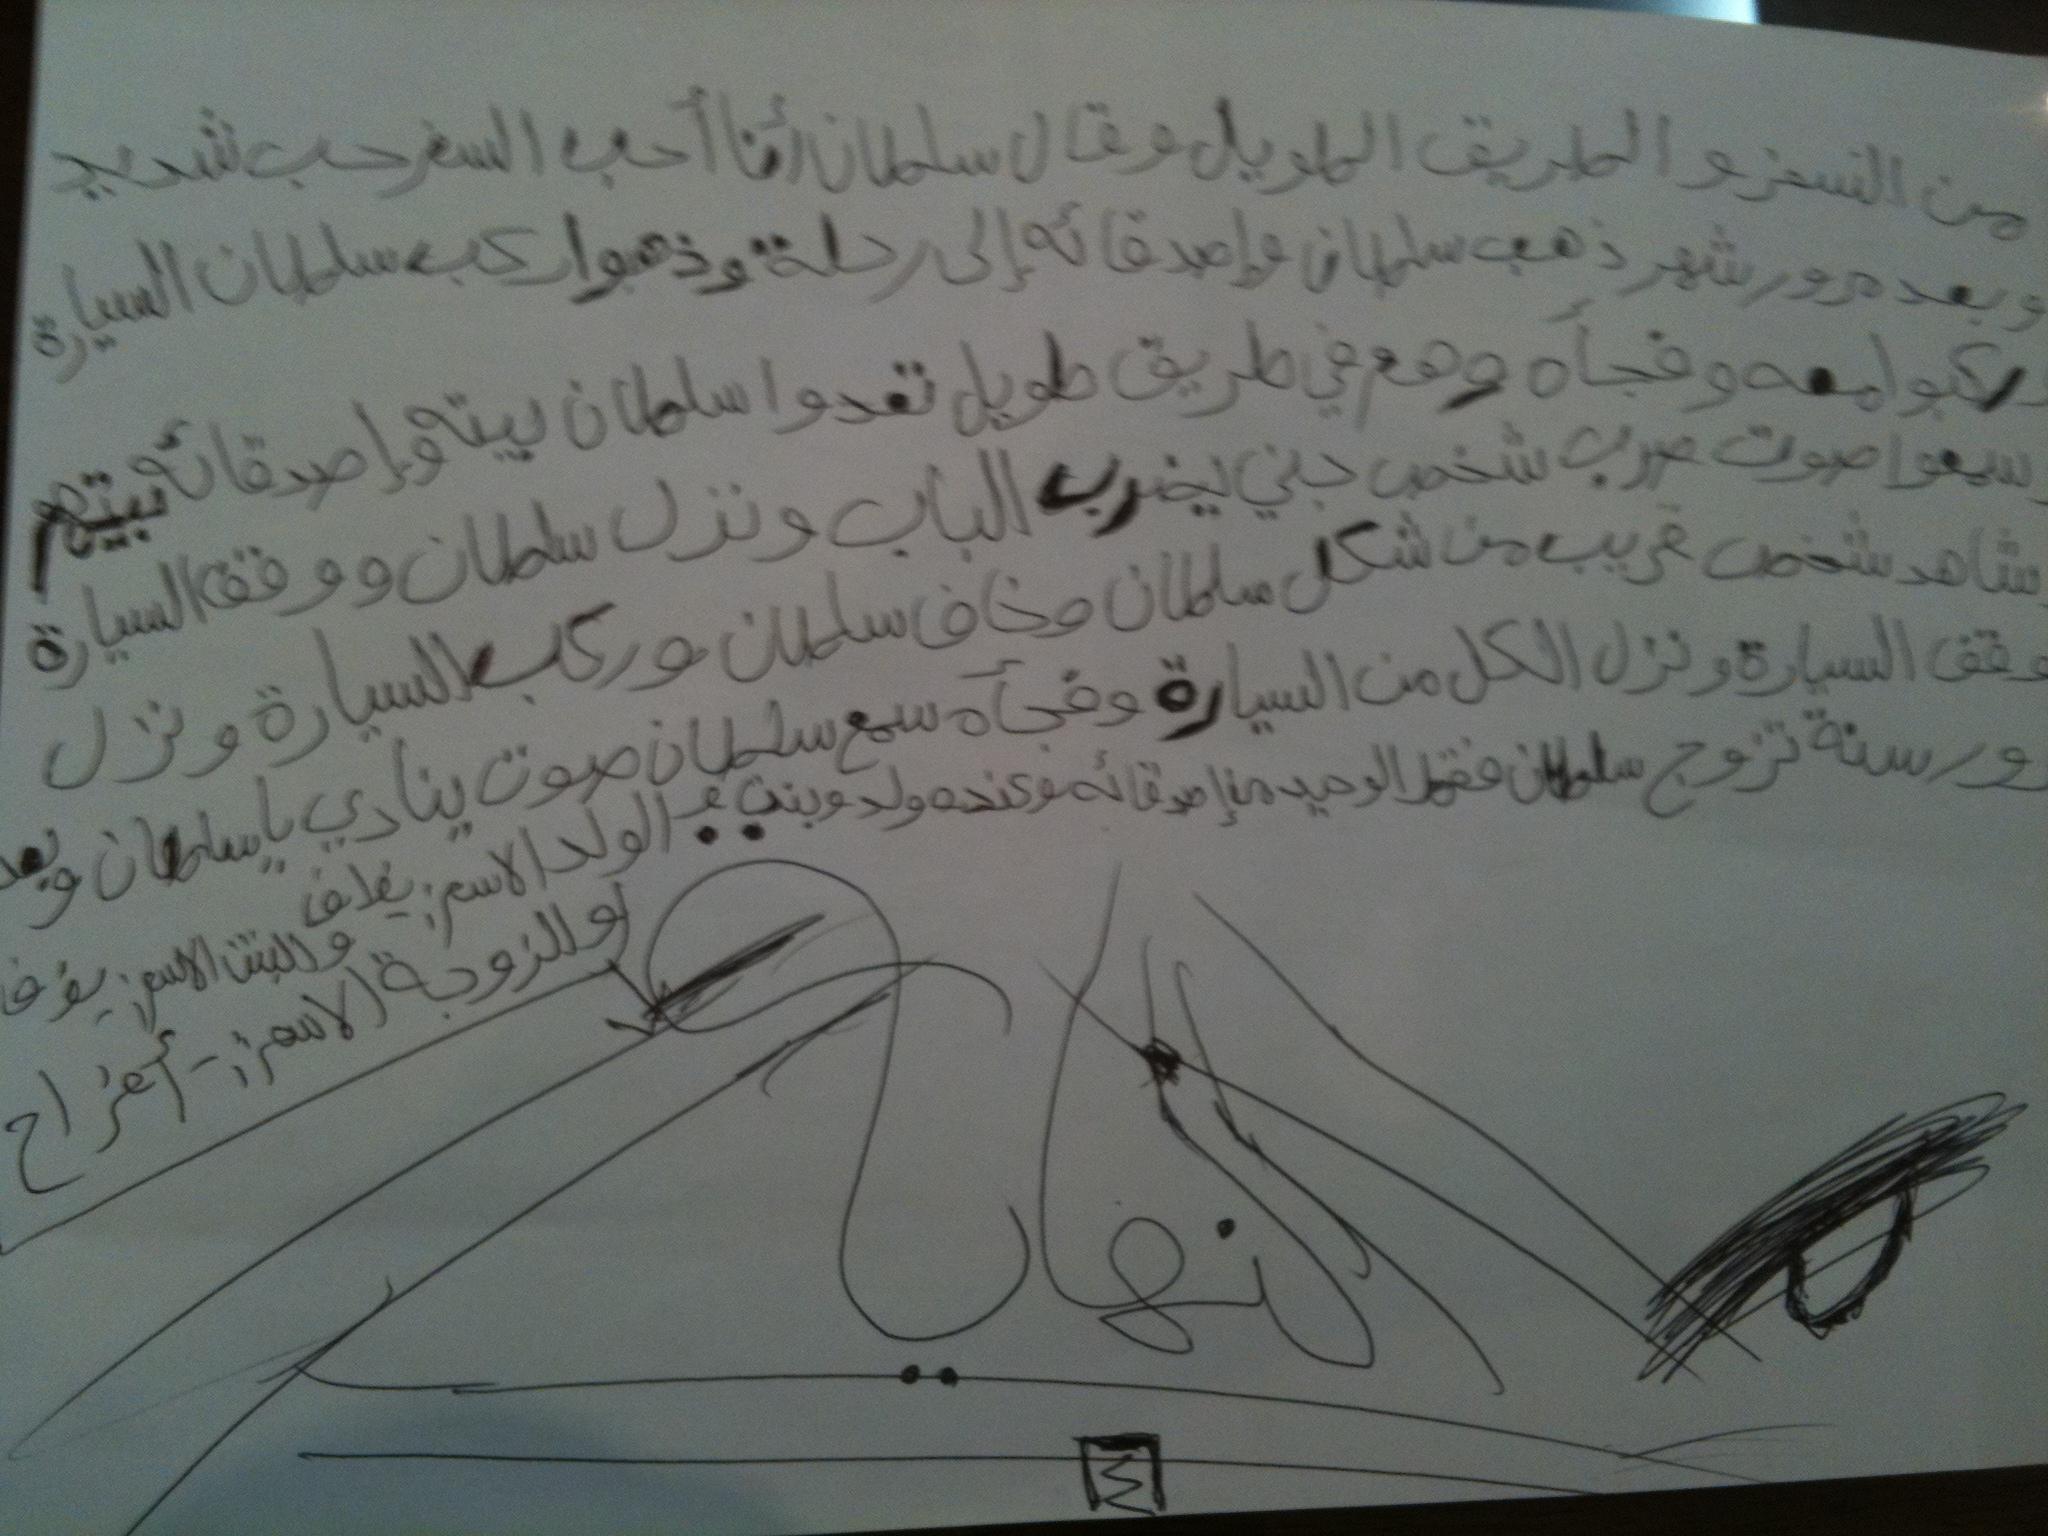 من السفر و الطريق الطويل وقال سلطان أنا أحب السفر حب شديد
و بعد مرور شهر ذهب سلطان وإصدقائه إلى رحلة وذهبوا ركب سلطان السيارة
وركبوا معه و فجأه وهم في طريق طويل تعدوا سلطان بيته وإصدقائه بيتهم
وسمعوا صوت ضرب شخص جني يضرب الباب ونزل سلطان و وقف السيارة
وشاهد شخص غريب من شكل سلطان وخاف سلطان وركب السيارة ونزل
وقف السيارة ونزل الكل من السيارة وفجأه سمع سلطان صوت ينادي يا سلطان وبعد
مرور سنة تزوج سلطان فقط الوحيد من إصدقائه وعنده ولد وبنت
الولد الاسم:
والبنت الاسم:
و للزوجة الاسم:- أفراح
النهاية
٤